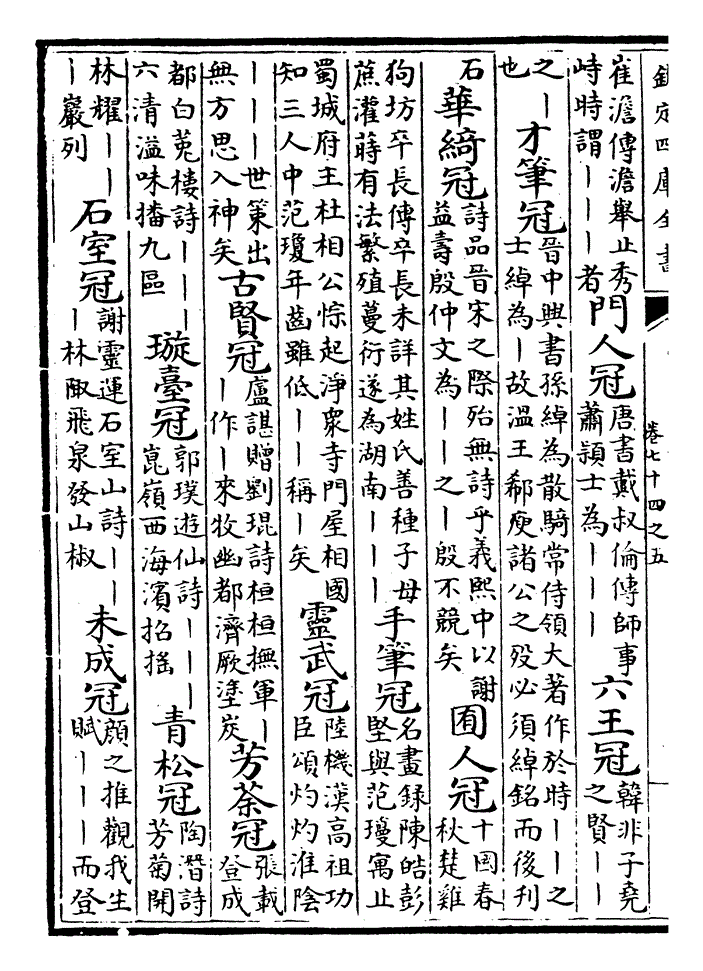 欽定四庫全書
卷七十四之五
崔澹傳澹舉止秀
峙時謂丨丨丨者
門人冠
唐書戴叔倫傳師事
蕭頴士為丨丨丨
六王冠
韓非子堯
之賢丨丨
之丨
也
才筆冠
晉中興書孫綽為散騎常侍領大著作於時丨丨之
士綽為丨故溫王郗庾諸公之歿必須綽銘而後刋
石
華綺冠
詩品晉宋之際殆無詩乎義熙中以謝
益壽殷仲文為丨丨之丨殷不競矣
囿人冠
十國春
秋楚雞
狗坊卒長傳卒長未詳其姓氏善種子母
蔗灌蒔有法繁殖蔓衍遂為湖南丨丨丨
手筆冠
名畫錄陳皓彭
堅與范瓊寓止
蜀城府主杜相公悰起淨衆寺門屋相國
知三人中范瓊年齒雖低丨丨稱丨矣
靈武冠
陸機漢高祖功
臣頌灼灼淮陰
丨丨丨世策出
無方思入神矣
古賢冠
盧諶贈劉琨詩桓桓撫軍丨
丨作丨來牧幽都濟厥塗炭
芳荼冠
張載
登成
都白菟樓詩丨丨丨
六清溢味播九區
璇臺冠
郭璞遊仙詩丨丨丨
崑嶺西海濱招搖
青松冠
陶潛詩
芳菊開
林耀丨丨
丨巖列
石室冠
謝靈運石室山詩丨丨
丨林陬飛泉發山椒
未成冠
顏之推觀我生
賦丨丨丨而登